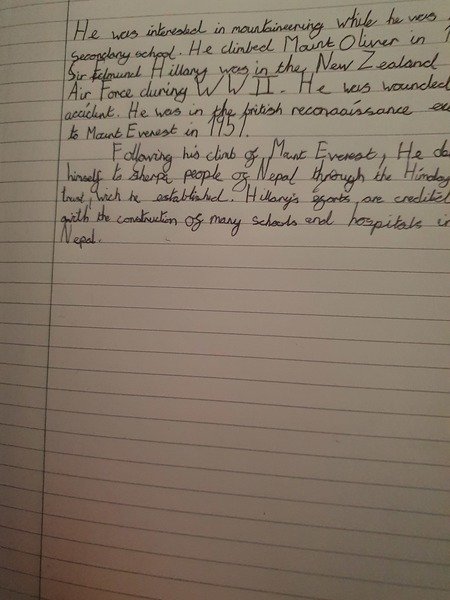 He was interested in mountaineering while he was
secondary school. He climbed Mount Oliver in
Sir Edmund Hillary was in the New Zealand
Air Force during WWII. He was wounded
accident. He was in the british reconaissance ex
to Mount Everest in 1951.
Following his climb of Mount Everest, He de
himself to sherpa people of Nepal through the Himalay
trust, wich he established. Hillary's egorts are credited
with the construction of many schools and hospitals in
Nepal.